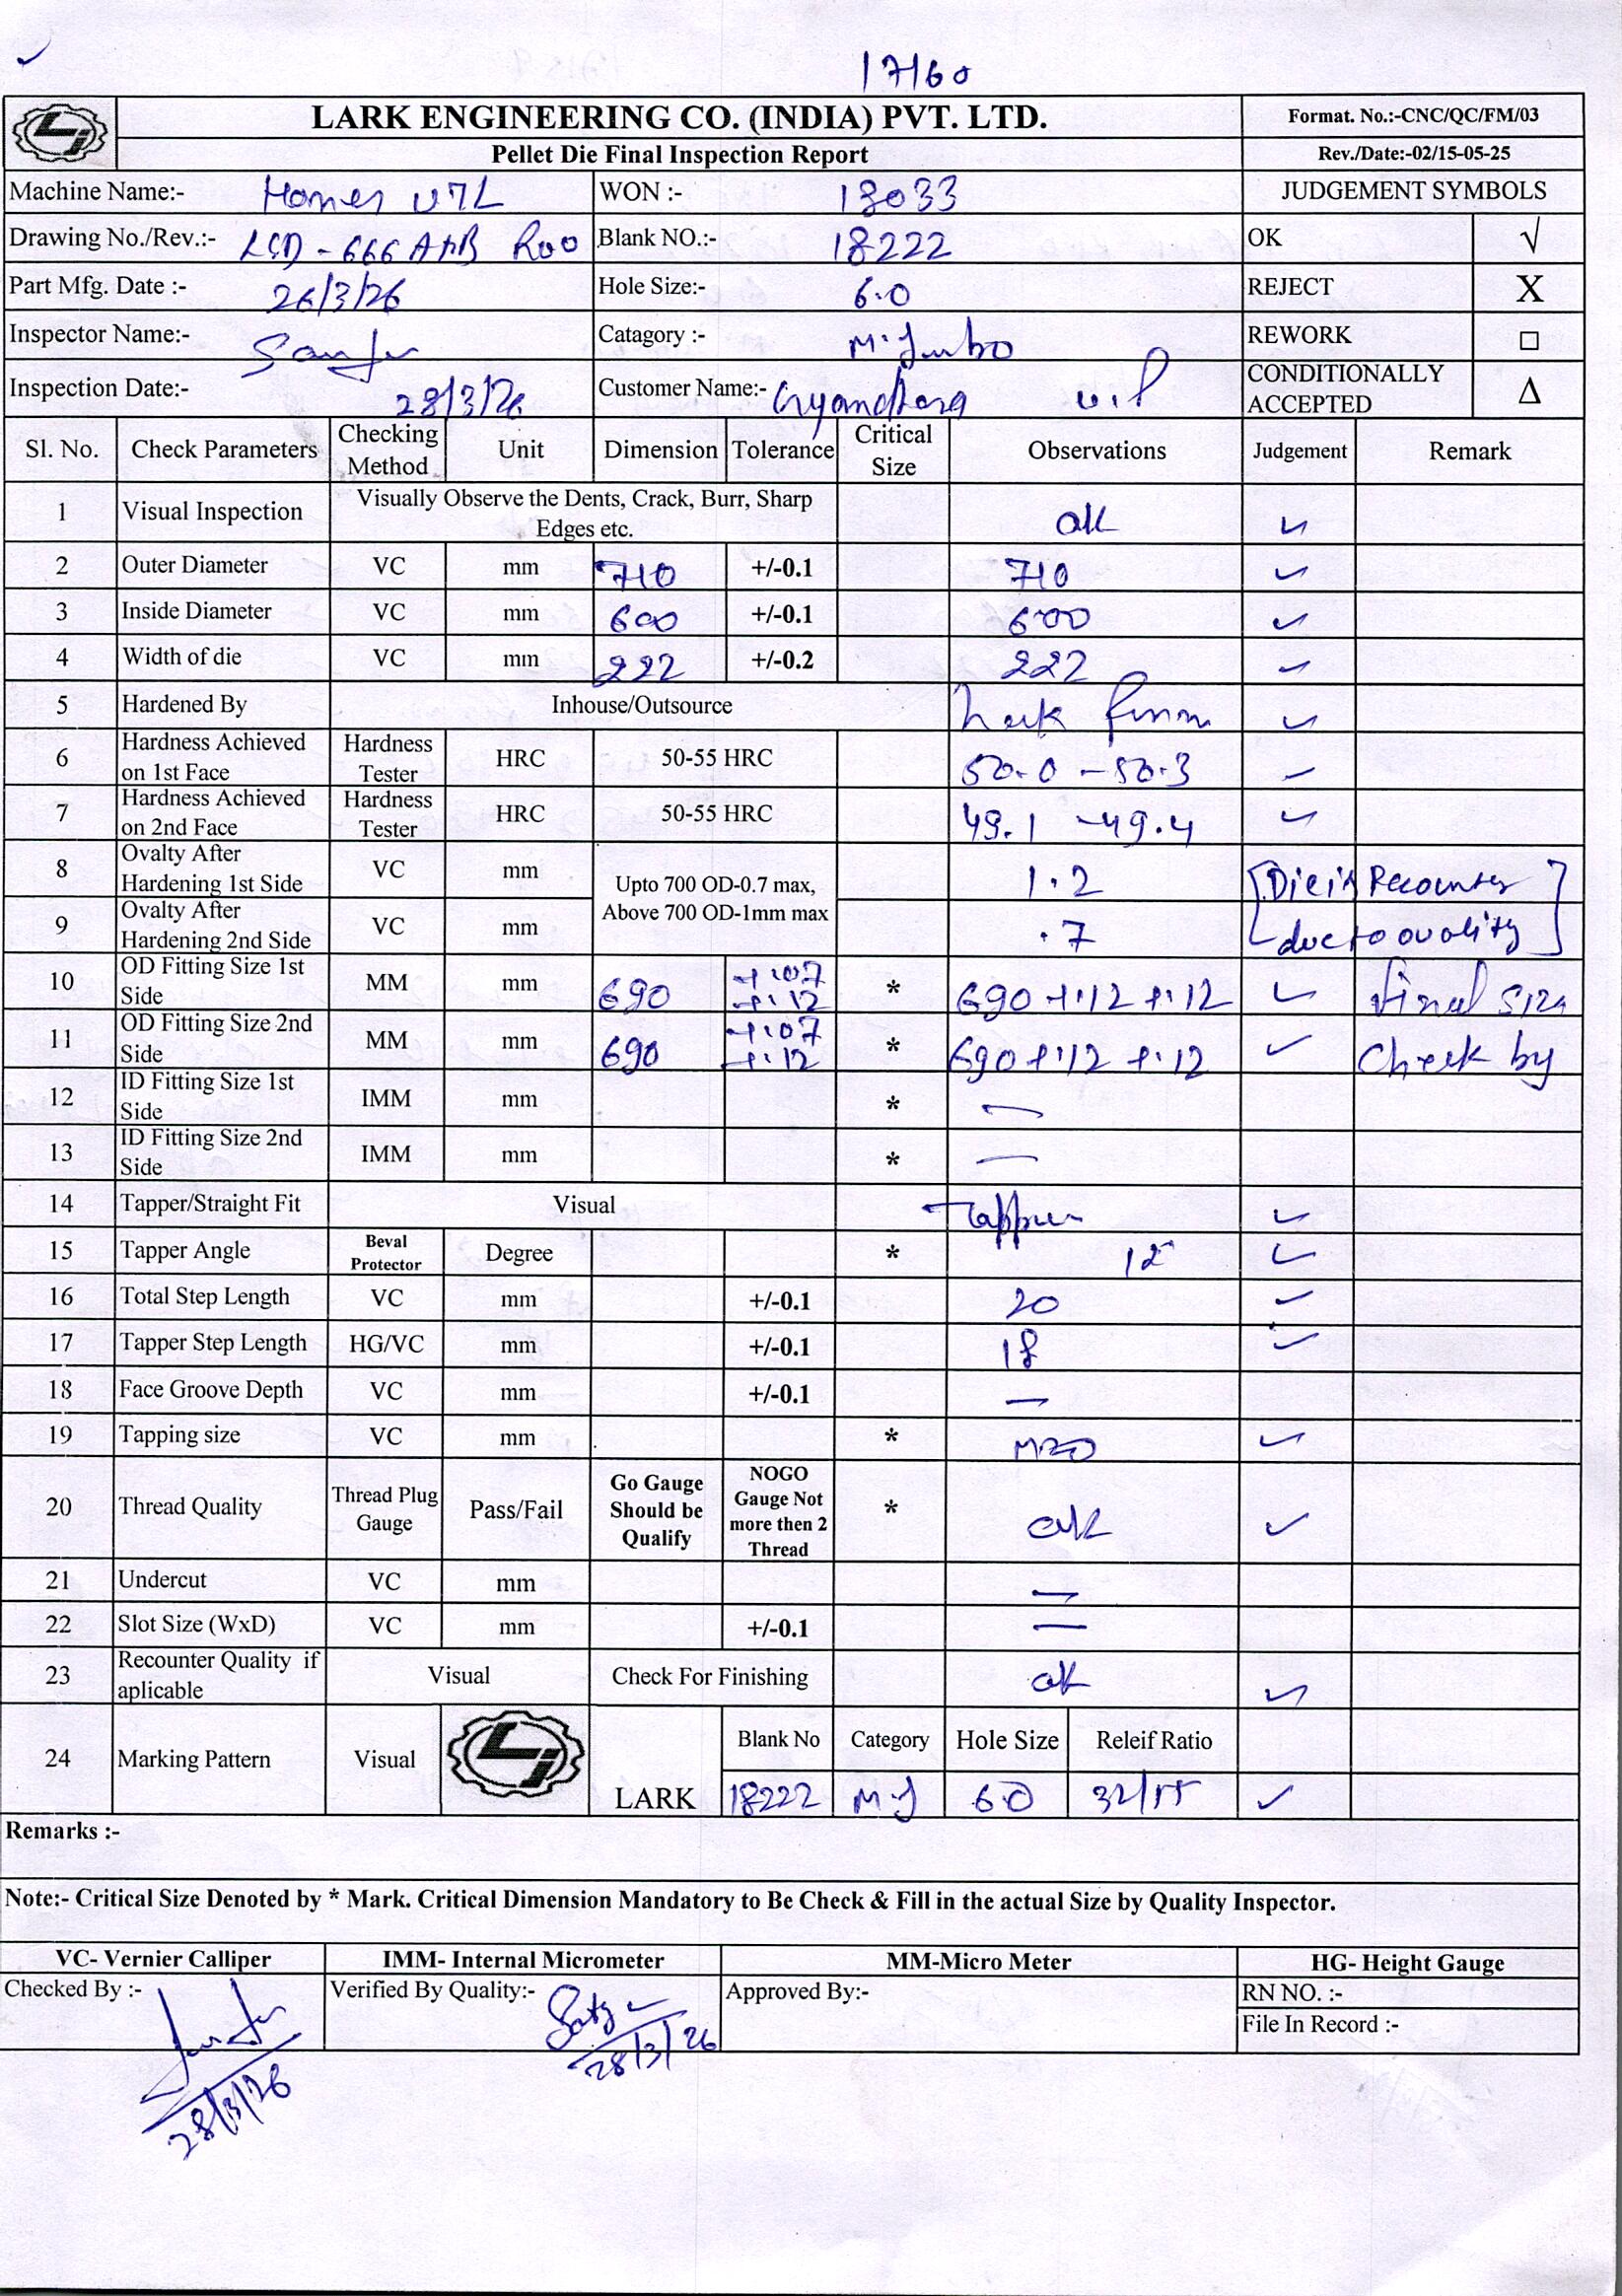 17160
LARK ENGINEERING CO. (INDIA) PVT. LTD.
Format. No.:-CNC/QC/FM/03
Pellet Die Final Inspection Report
Rev./Date:-02/15-05-25
Machine Name:- U7L WON :- 18033 JUDGEMENT SYMBOLS
Drawing No./Rev.:- LCD-666 A+B R00 Blank NO.:- 18222 OK √
Part Mfg. Date :- 26/3/26 Hole Size:- 6.0 REJECT X
Inspector Name:- Catagory :- M.Jumbo REWORK □
Inspection Date:- 28/3/26 Customer Name:- Gyandhara U.P CONDITIONALLY ACCEPTED Δ
Sl. No. Check Parameters Checking Method Unit Dimension Tolerance Critical Size Observations Judgement Remark
1 Visual Inspection Visually Observe the Dents, Crack, Burr, Sharp Edges etc. ok ✓
2 Outer Diameter VC mm 710 +/-0.1 710 ✓
3 Inside Diameter VC mm 600 +/-0.1 600 ✓
4 Width of die VC mm 222 +/-0.2 222 ✓
5 Hardened By Inhouse/Outsource ✓
6 Hardness Achieved on 1st Face Hardness Tester HRC 50-55 HRC 50.0 - 50.3 ✓
7 Hardness Achieved on 2nd Face Hardness Tester HRC 50-55 HRC 49.1 - 49.4 ✓
8 Ovalty After Hardening 1st Side VC mm Upto 700 OD-0.7 max, Above 700 OD-1mm max 1.2 [Die is Recounter
9 Ovalty After Hardening 2nd Side VC mm .7 due to ovality]
10 OD Fitting Size 1st Side MM mm 690 +.07 +.12 * 690 +.12 +.12 ✓ final size
11 OD Fitting Size 2nd Side MM mm 690 +.07 +.12 * 690 +.12 +.12 ✓ Check by
12 ID Fitting Size 1st Side IMM mm * —
13 ID Fitting Size 2nd Side IMM mm * —
14 Tapper/Straight Fit Visual Tapper ✓
15 Tapper Angle Beval Protector Degree * ✓
16 Total Step Length VC mm +/-0.1 20 ✓
17 Tapper Step Length HG/VC mm +/-0.1 18 ✓
18 Face Groove Depth VC mm +/-0.1 —
19 Tapping size VC mm * M20 ✓
20 Thread Quality Thread Plug Gauge Pass/Fail Go Gauge Should be Qualify NOGO Gauge Not more then 2 Thread * ok ✓
21 Undercut VC mm —
22 Slot Size (WxD) VC mm +/-0.1 —
23 Recounter Quality if aplicable Visual Check For Finishing ok ✓
24 Marking Pattern Visual LARK Blank No Category Hole Size Releif Ratio
18222 M.J 6.0 ✓
Remarks :-
Note:- Critical Size Denoted by * Mark. Critical Dimension Mandatory to Be Check & Fill in the actual Size by Quality Inspector.
VC- Vernier Calliper IMM- Internal Micrometer MM-Micro Meter HG- Height Gauge
Checked By :- Verified By Quality:- Approved By:- RN NO. :-
File In Record :-
28/3/26
28/3/26